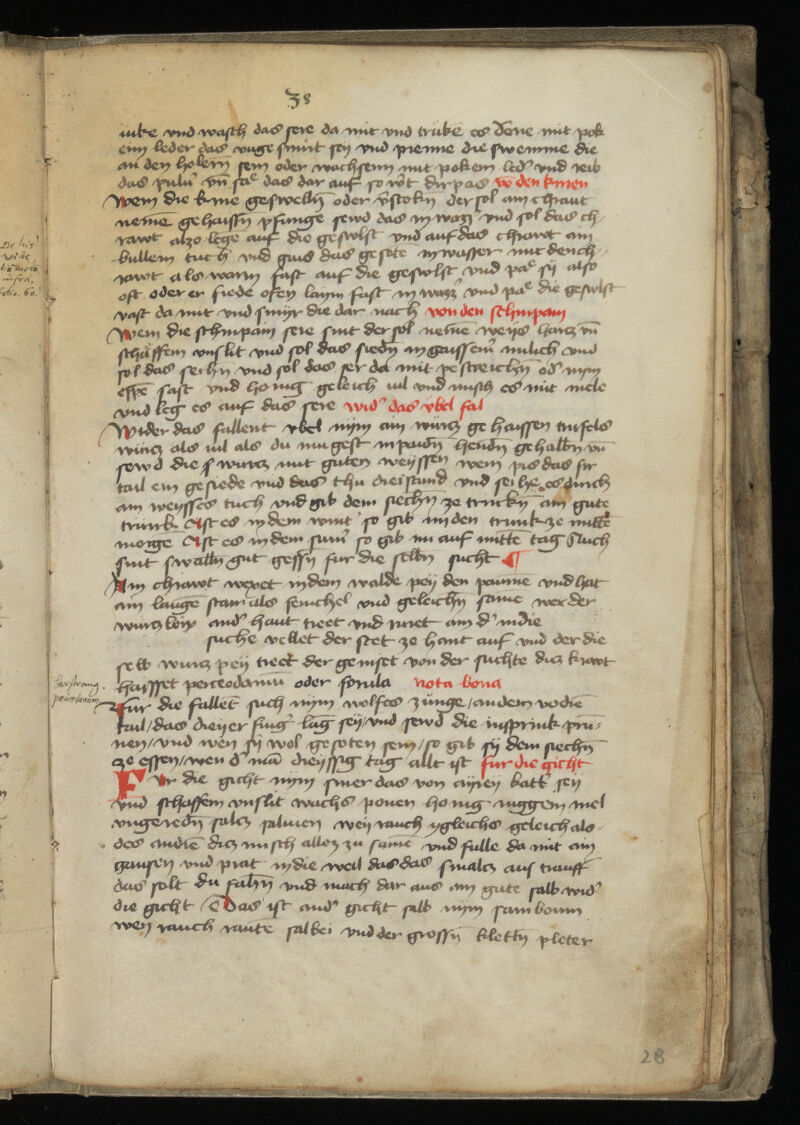 38
iuke vnd wasch das sere da mit vnd trüke es dēne mit pok
eim leder das vnge smirt sey vnd prenne die swemme die
an den holern sein oder wachsenn mit pokem led' vnd reib
das puluˀ vn̄ sa͛ das dar auf so wt dir pas vō den knien
Wem die knie geswelln̄ oder v̄stokn̄ der sol ain chraut
nemē gehaissn̄ pfunge sewd das in wazz' vnd sol das ch
rawt alzo lege auf die geswlst vnd auf das chrawt ain
bullem tuch vnd gius das gesote in wasser mit dem ch
rawt als warm fast auf die geswlst vnd pa͛ sy also
oft oder er siede ofen laym fast in wazz' vnd pa͛ die geswlst
vast da mit vnd smyr die dar nach von den schinpain
Wem die schinpain sere sint der sol neme weyss harz vn̄
schaffem vnslit vnd sol das siedn̄ in gaissem' milich vnd
sol das seihn̄ vnd sol das ser da mit pestreichn̄ od' nym
eppē saft vnd honig geleich uil vnd misch es mit mele
vnd leg es auf das sere wid' das vbel fal
Wider das fallent vbel nym ain würz gehaissen tiufels
würz als uil als du mugest in paidn̄ hendn̄ gehaltn̄ vn̄
sewd die swurz mit guten weyssen wein pis das fir
tail ein gesiede vnd das thu drei stund vnd seihe es durch
ain weysses tuch vnd gib dem siechn̄ ze trinckn̄ ain gute
trunk Ist es in dem wint' so gib im den trunk ze mitte
morge Ist es in dem sum' so gib im auf mitte tag Auch
sint swalbn̄ gut gessn̄ fur die selbn̄ sucht ¶
Ain chrawt wexet in dem walde pey den paumē vnd hat
ain lange stam als fenichel vnd geleichn̄ same wer der
wurz ān and' haut treet vnd ruret am d' in die
suche vellet der stet ze hant auf vnd der die
selb wurz pey treet der geniset von der suchte diz krawt
haisset perceodanum oder ferula nota bona
harstrang.
peucedanum
Fur die fallet such nym wolfes zunge / an dem vodiē
tail / das dreyer fing' lāg sey / vnd sewd die in sprink prū-
nen / vnd wen sy wol gesoten sein / so gib sy dem siechn̄
ze essen / wen d' mā dreyssig tag allt ist für die gicht
Fur die gicht nym smer das von ayren katt' sey
vnd schaffem vnslit wachs ponen honig ruggem mel
vngeredn̄ salz saluien weyrauch ygleichs geleich als
des andrē diz misch allez zu same vnd fulle da mit ain
gansen vnd prat in die weil das das smalz aus trauff
das solt du fahn̄ vnd mach dar aus ain gute salb wid'
die gicht Das ist and' gicht salb nym sambonin
weyrauch raute salbei vnd der grossn̄ klettn̄ pleter
28